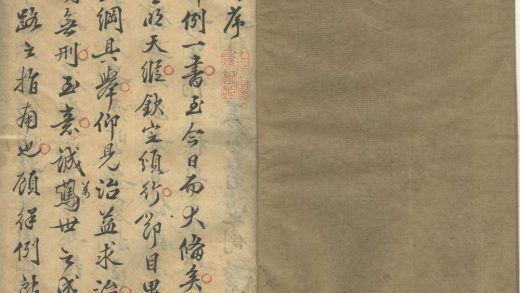 序
例一書至今日而大備矣
明天縱欽定頒行節目畢
綱具舉仰見治益求治
無刑至意誠萬世之成
路之指南也顧律例